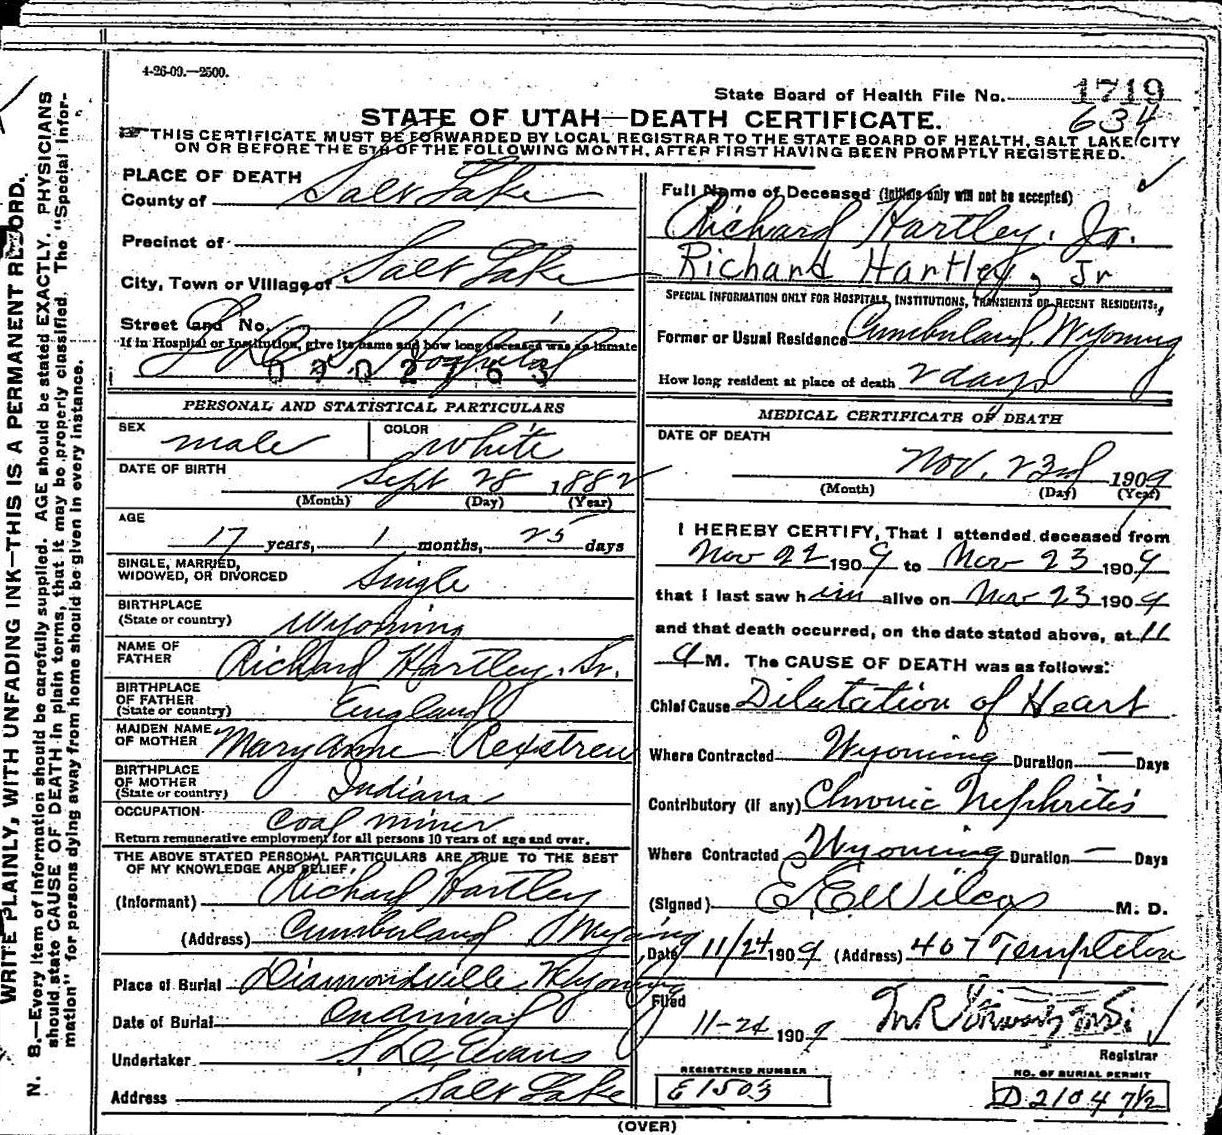 4-26-09.—2500.
State Board of Health File No. 1719
634
STATE OF UTAH—DEATH CERTIFICATE.
THIS CERTIFICATE MUST BE FORWARDED BY LOCAL REGISTRAR TO THE STATE BOARD OF HEALTH, SALT LAKE CITY
ON OR BEFORE THE 5TH OF THE FOLLOWING MONTH, AFTER FIRST HAVING BEEN PROMPTLY REGISTERED.
WRITE PLAINLY, WITH UNFADING INK—THIS IS A PERMANENT RECORD.
N. B.—Every item of information should be carefully supplied. AGE should be stated EXACTLY. PHYSICIANS
should state CAUSE OF DEATH in plain terms, that it may be properly classified. The "Special Infor-
mation" for persons dying away from home should be given in every instance.
PLACE OF DEATH
County of Salt Lake
Precinct of
City, Town or Village of Salt Lake
Street and No.
If in Hospital or Institution, give its name and how long deceased was an inmate
L.D.S. Hospital
PERSONAL AND STATISTICAL PARTICULARS
SEX male COLOR white
DATE OF BIRTH Sept 28 1882
(Month) (Day) (Year)
AGE
17 years, 1 months, 25 days
SINGLE, MARRIED,
WIDOWED, OR DIVORCED Single
BIRTHPLACE
(State or country) Wyoming
NAME OF
FATHER Richard Hartley. Sr.
BIRTHPLACE
OF FATHER
(State or country) England
MAIDEN NAME
OF MOTHER Mary Anne
BIRTHPLACE
OF MOTHER
(State or country) Indiana
OCCUPATION coal miner
Return remunerative employment for all persons 10 years of age and over.
THE ABOVE STATED PERSONAL PARTICULARS ARE TRUE TO THE BEST
OF MY KNOWLEDGE AND BELIEF.
(Informant) Richard Hartley
(Address) Cumberland Wyoming
Place of Burial Diamondville Wyoming
Date of Burial On arrival
Undertaker Evans
Address Salt Lake
Full Name of Deceased (initials only will not be accepted)
Richard Hartley. Jr.
Richard Hartley, Jr
SPECIAL INFORMATION ONLY FOR HOSPITALS, INSTITUTIONS, TRANSIENTS OR RECENT RESIDENTS:
Former or Usual Residence Cumberland. Wyoming
How long resident at place of death 2 days
MEDICAL CERTIFICATE OF DEATH
DATE OF DEATH
Nov. 23rd 1909
(Month) (Day) (Year)
I HEREBY CERTIFY, That I attended deceased from
Nov 22 1909 to Nov 23 1909
that I last saw him alive on Nov 23 1909
and that death occurred, on the date stated above, at 11
a M. The CAUSE OF DEATH was as follows:
Chief Cause Dilatation of Heart
Where Contracted Wyoming Duration — Days
Contributory (if any) Chronic Nephritis
Where Contracted Wyoming Duration — Days
(Signed) E. E. Wilcox M. D.
Date 11/24 1909 (Address) 407 Templeton
Filed
11-24 1909
Registrar
REGISTERED NUMBER
E1503
NO. OF BURIAL PERMIT
D 21047½
(OVER)